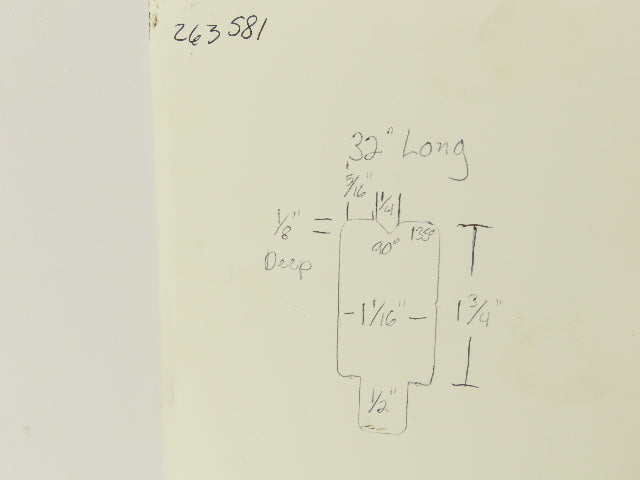 263581
32" Long
5/16"
1/4
1/8"
Deep
90°
135°
1 1/16"
1 3/4"
1/2"